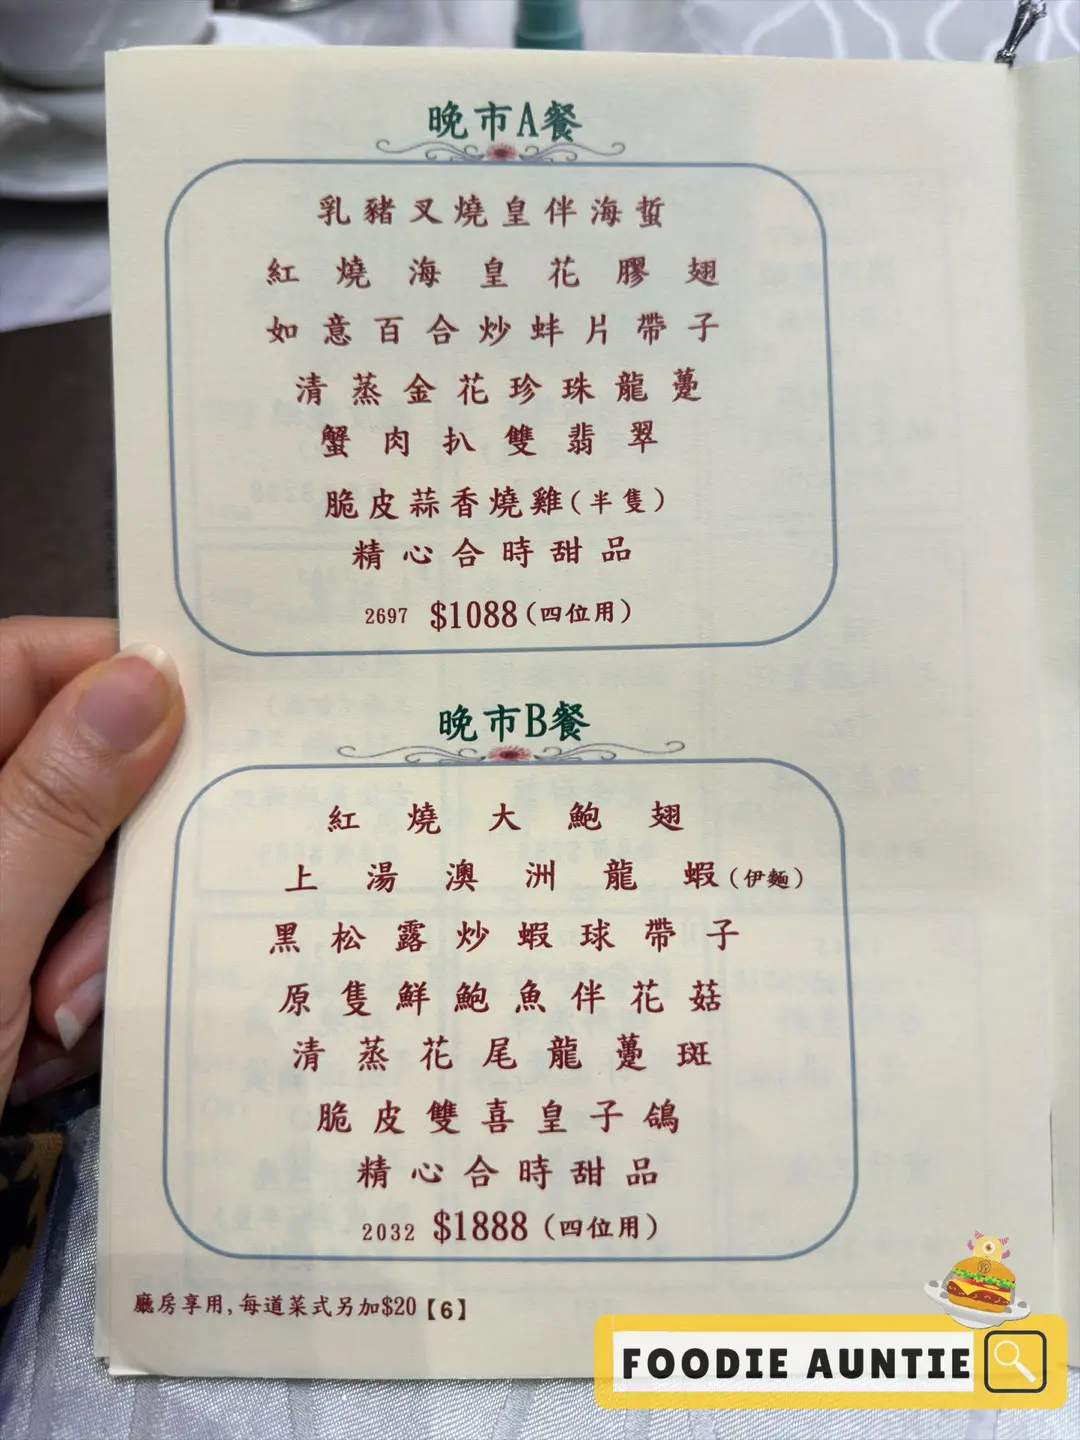 晚市A餐
乳豬叉燒皇伴海蜇
紅燒海皇花膠翅
如意百合炒蚌片帶子
清蒸金花珍珠龍躉
蟹肉扒雙翡翠
脆皮蒜香燒雞(半隻)
精心合時甜品
2697 $1088(四位用)
晚市B餐
紅燒大鮑翅
上湯澳洲龍蝦(伊麵)
黑松露炒蝦球帶子
原隻鮮鮑魚伴花菇
清蒸花尾龍躉斑
脆皮雙喜皇子鴿
精心合時甜品
2032 $1888(四位用)
廳房享用,每道菜式另加$20【6】
FOODIE AUNTIE